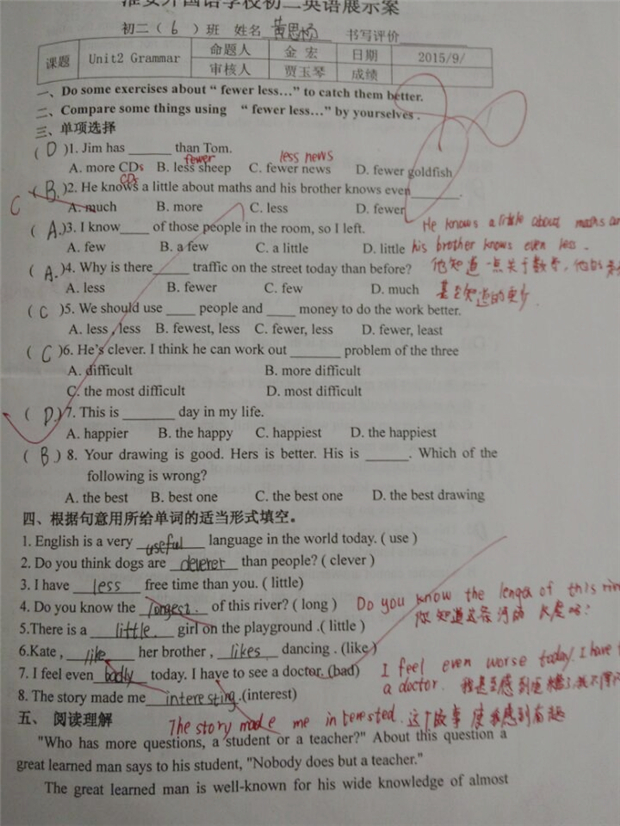 淮安外国语学校初二英语展示案
初二（ 6 ）班 姓名 黄思杨 书写评价
课题 Unit2 Grammar 命题人 金 宏 日期 2015/9/
审核人 贾玉琴 成绩
一、Do some exercises about “ fewer less…” to catch them better.
二、Compare some things using “ fewer less…” by yourselves .
三、单项选择
( D )1. Jim has ______ than Tom.
fewer less news
A. more CDs B. less sheep C. fewer news D. fewer goldfish
CDs
C ( B. )2. He knows a little about maths and his brother knows even______.
A. much B. more C. less D. fewer
( A. )3. I know____ of those people in the room, so I left.
He knows a little about maths and
A. few B. a few C. a little D. little
his brother knows even less.
( A. )4. Why is there_____ traffic on the street today than before?
他知道一点关于数学，他的
A. less B. fewer C. few D. much
甚至知道的更少.
( C )5. We should use ____ people and ____ money to do the work better.
A. less , less B. fewest, less C. fewer, less D. fewer, least
( C )6. He's clever. I think he can work out _______ problem of the three
A. difficult B. more difficult
C. the most difficult D. most difficult
( D. )7. This is _______ day in my life.
A. happier B. the happy C. happiest D. the happiest
( B ) 8. Your drawing is good. Hers is better. His is ______. Which of the
following is wrong?
A. the best B. best one C. the best one D. the best drawing
四、根据句意用所给单词的适当形式填空。
1. English is a very useful language in the world today. ( use )
2. Do you think dogs are cleverer than people? ( clever )
3. I have less free time than you. ( little)
4. Do you know the longest. of this river? ( long )
Do you know the lengea of this rive
5.There is a little. girl on the playground .( little )
你知道这条河的长度吗?
6.Kate , like her brother , likes dancing . (like )
7. I feel even badly today. I have to see a doctor. (bad)
I feel even worse today. I have t
a doctor.
8. The story made me interesting .(interest)
The story made me interested. 这个故事使我感到有趣
五、 阅读理解
"Who has more questions, a student or a teacher?" About this question a
great learned man says to his student, "Nobody does but a teacher."
The great learned man is well-known for his wide knowledge of almost